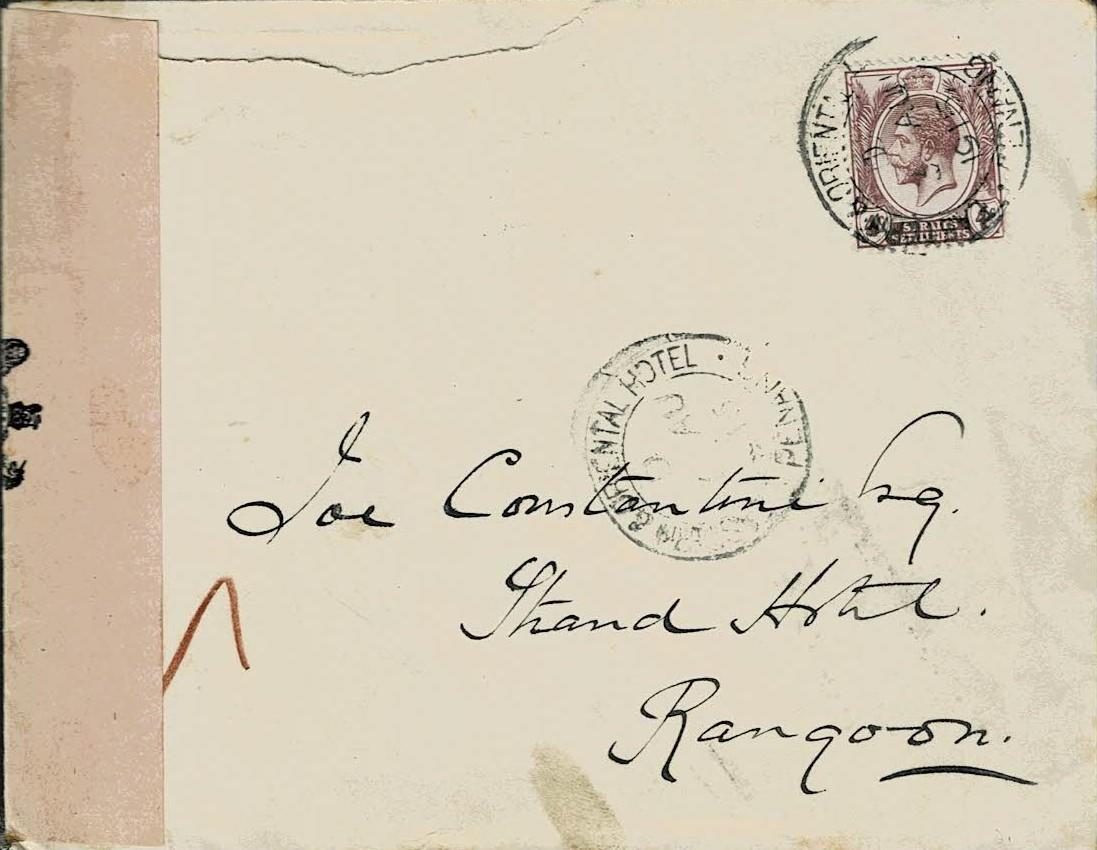 & ORIENTAL
PENANG
AU
1915
STRAITS
SETTLEMENTS
& ORIENTAL HOTEL · PENANG
AU
Joe Constantine Esq.
Strand Hotel.
Rangoon.